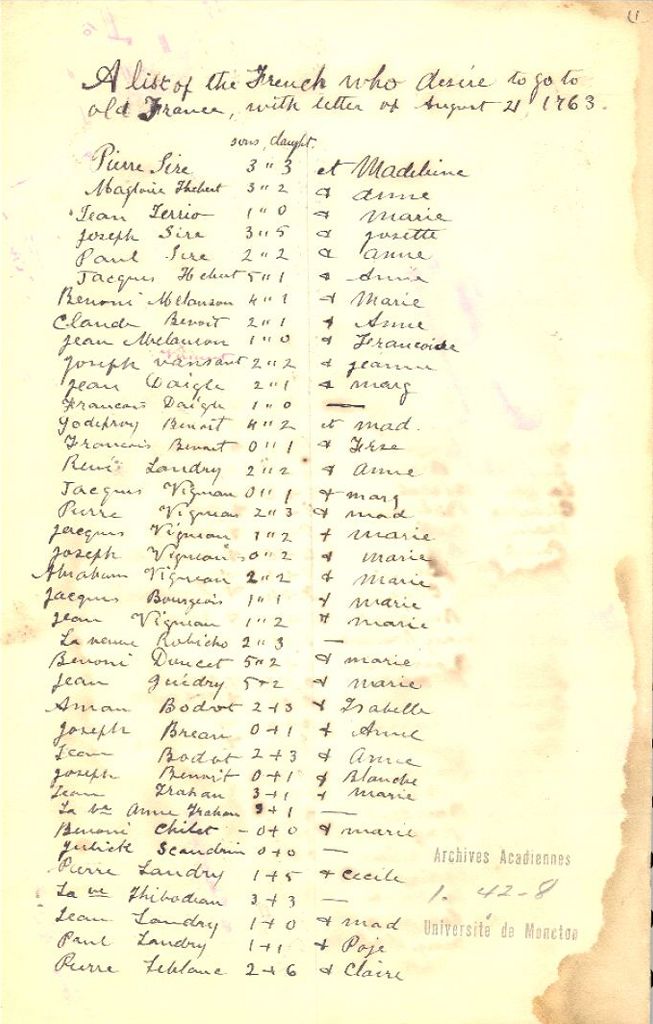 A list of the French who desire to go to
old France, with letter of August 21, 1763.
sons, daught.
Pierre Sire 3 " 3 et Madeleine
Magloire Hebert 3 " 2 & Anne
Jean Terrio 1 " 0 & Marie
Joseph Sire 3 " 5 & Josette
Paul Sire 2 " 2 & Anne
Jacques Hebert 5 " 1 & Annie
Benoni Melanson 4 " 1 & Marie
Claude Benoit 2 " 1 & Anne
Jean Melanson 1 " 0 & Francoise
Joseph Vansant 2 " 2 & Jeanne
Jean Daigle 2 " 1 & Marg
Francois Daigle 1 " 0 —
Godefroy Benoit 4 " 2 et Mad.
Francois Benoit 0 " 1 &
René Landry 2 " 2 & Anne
Jacques Vigneau 0 " 1 & Marg
Pierre Vigneau 2 " 3 & Mad
Jacques Vigneau 1 " 2 + Marie
Joseph Vigneau 0 " 2 & Marie
Abraham Vigneau 2 " 2 & Marie
Jacques Bourgeois 1 " 1 & Marie
Jean Vigneau 1 " 2 & Marie
La veuve Robicho 2 " 3 —
Benoni Doucet 5 " 2 & Marie
Jean Guédry 5 + 2 & Marie
Aman Bodrot 2 + 3 & Isabelle
Joseph Breau 0 + 1 & Anne
Jean Bodot 2 + 3 & Anne
Joseph Benoit 0 + 1 & Blanche
Jean Trahan 3 + 1 & Marie
La ve Anne Trahan 3 + 1 —
Benoni Chilet – 0 + 0 & Marie
Scandrin 0 + 0 —
Pierre Landry 1 + 5 & Cecile
La ve Thibodeau 3 + 3 —
Jean Landry 1 + 0 & Mad
Paul Landry 1 + 1 & Poje
Pierre Leblanc 2 + 6 & Claire
Archives Acadiennes
1. 42-8
Université de Moncton